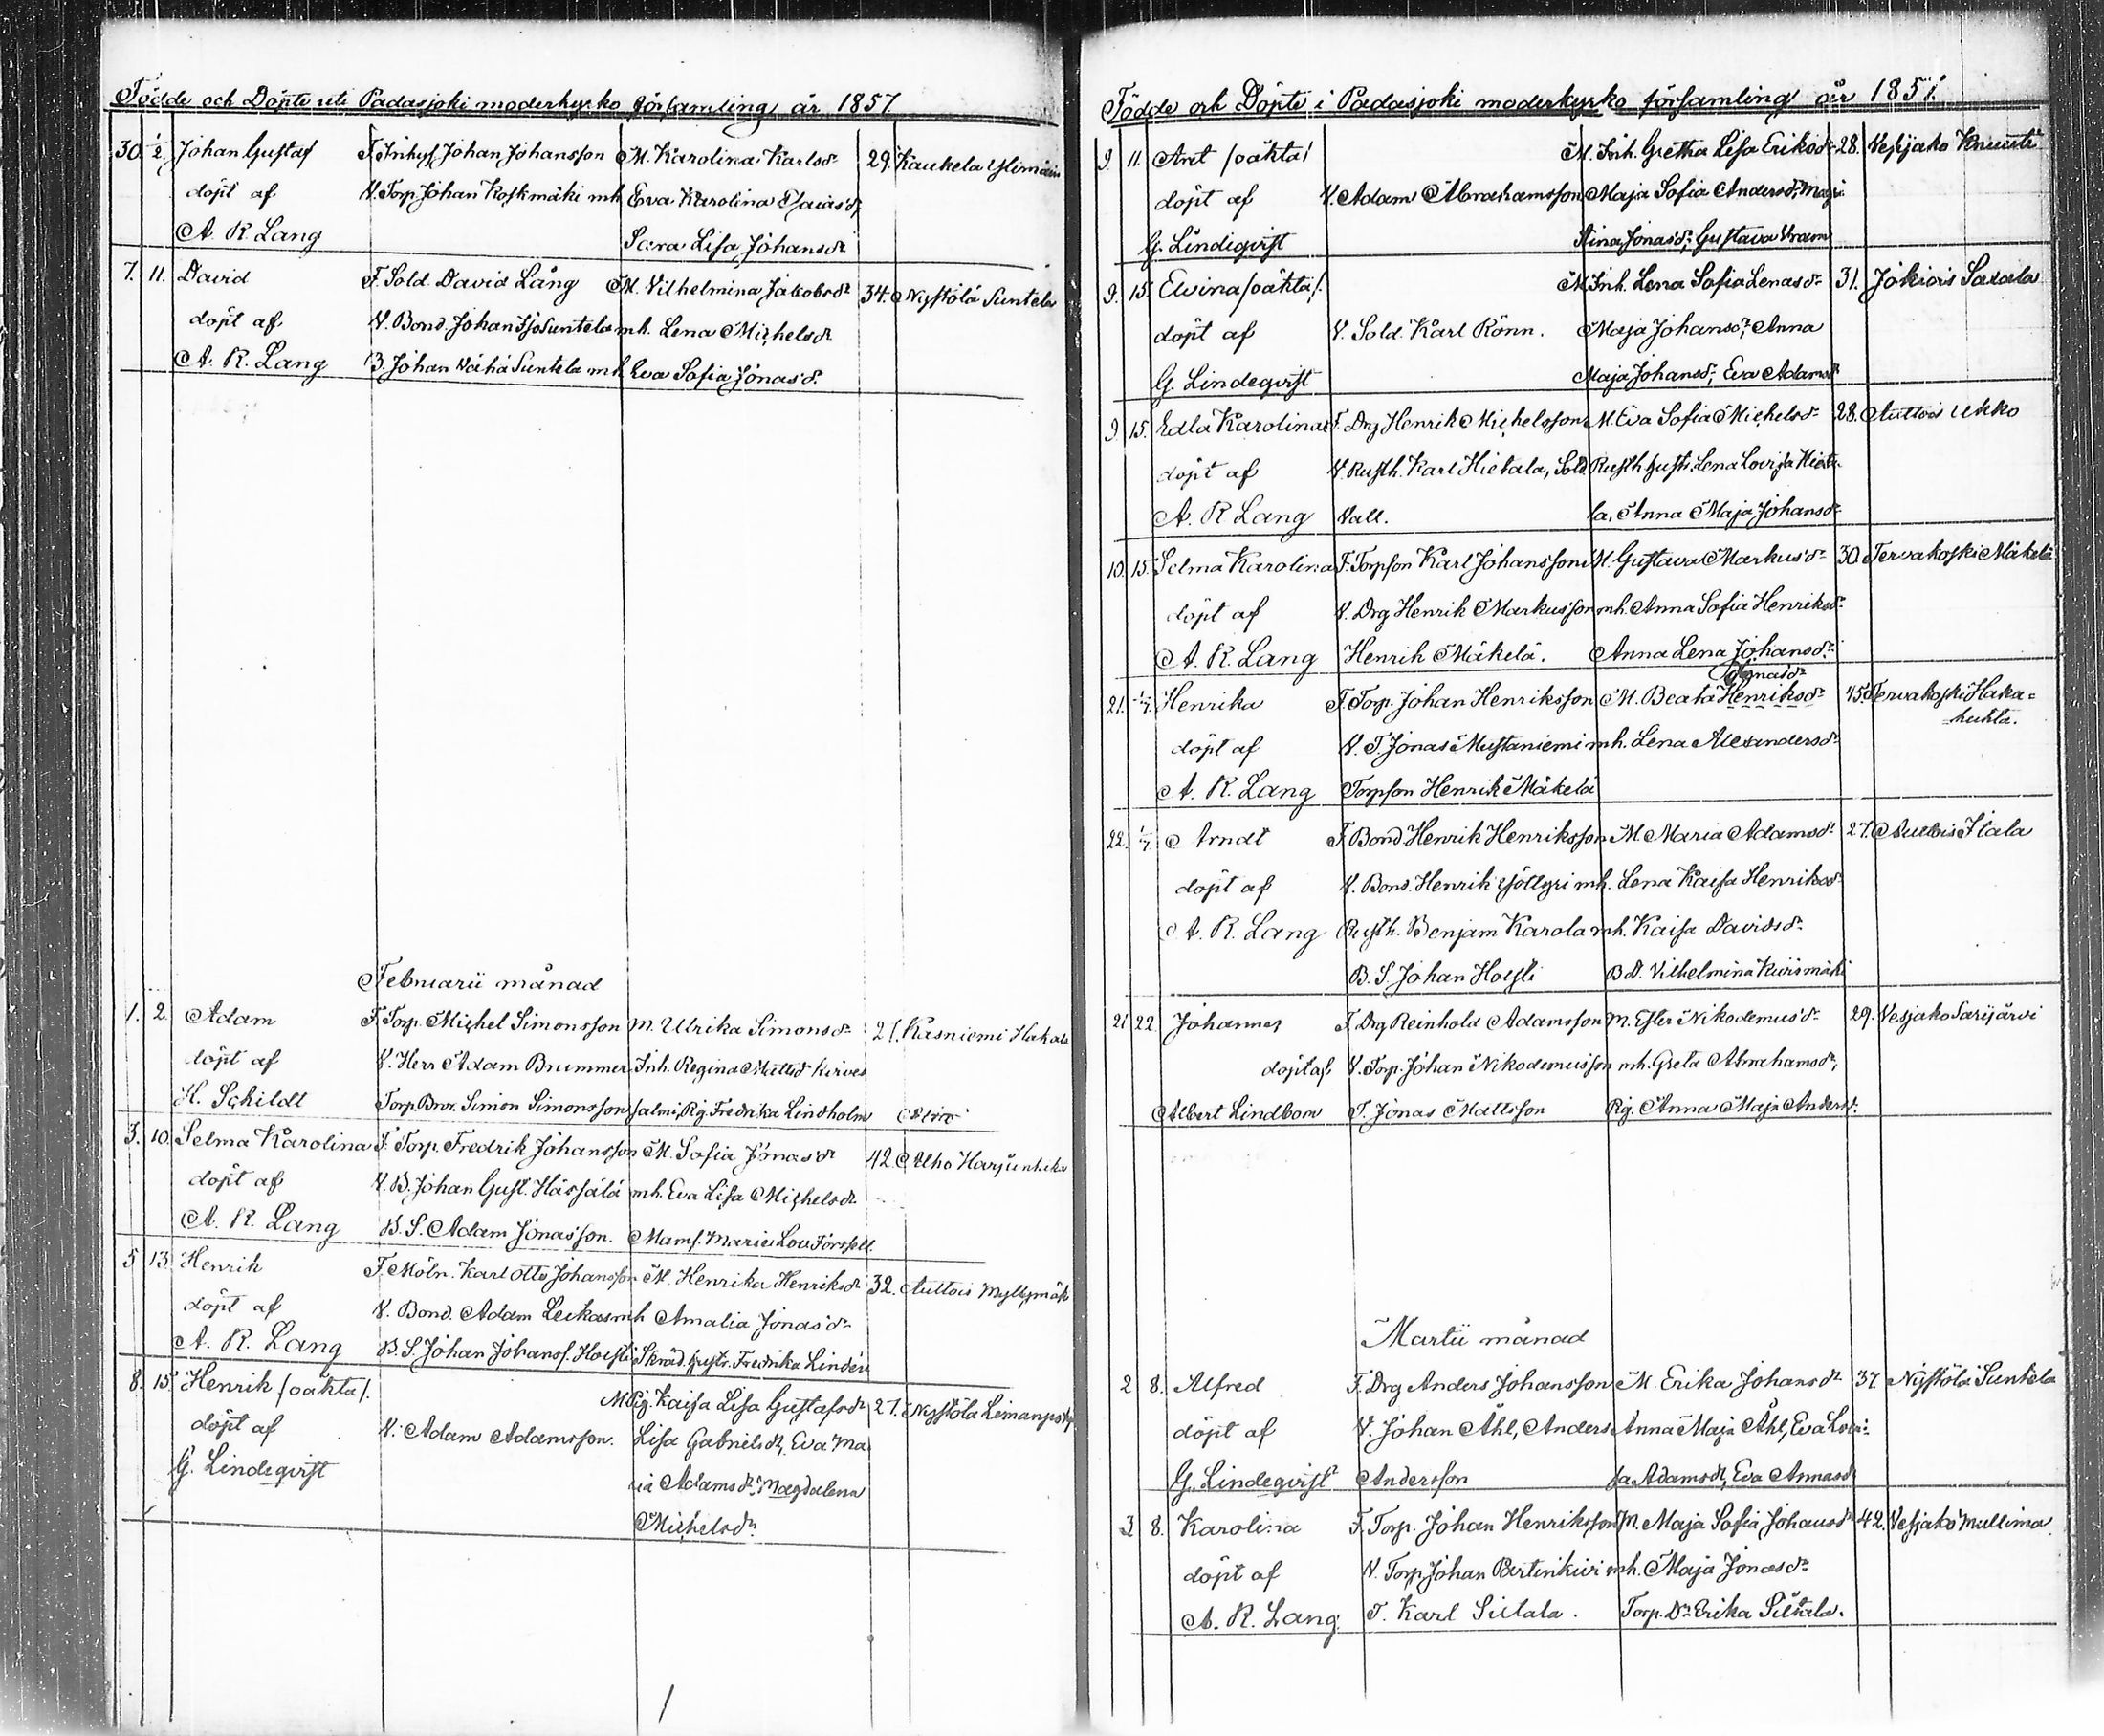 Födde och Döpte uti Padasjoki moderkyrko församling år 1857
30. 1/2. Johan Gustaf F. Inhys Johan Johansson M. Karolina Karlsdr 29. Kaukela Ylimäin
döpt af V. Torp Johan Koskmäki mh Eva Karolina Esaiasdr,
A. R. Lang Sara Lisa Johansdr
7. 11. David F. Sold. David Lång M. Vilhelmina Jakobsdr 34. Nystölä Suntela
döpt af V. Bond. Johan Iso Suntela mh. Lena Michelsdr
A. R. Lang B. Johan Vähä Suntela mh. Eva Sofia Jonasdr.
Februarii månad
1. 2. Adam F. Torp. Michel Simonsson M. Ulrika Simonsdr 21. Kasniemi Hakala
döpt af V. Herr Adam Brummer. Inh. Regina Mattsdr Kirves
H. Schildt Torp. Bror. Simon Simonsson salmi, Pig. Fredrika Lindholm
3. 10. Selma Karolina F. Torp. Fredrik Johansson M. Sofia Jonasdr 42. Auho Harjunheka
döpt af V. B. Johan Gust. Hässälä mh. Eva Lisa Michelsdr.
A. R. Lang B. S. Adam Jonasson. Mams. Maria Lov. Forssell.
5 13. Henrik F. Möln. Karl Otto Johansson M. Henrika Henriksdr 32. Auttois Myllymäk
döpt af V. Bond. Adam Leikas mh Amalia Jonasdr
A. R. Lang B. S. Johan Johans. Hoisti Skräd. hustr. Fredrika Lindén
8. 15. Henrik /oäkta/. M. Pig. Kaisa Lisa Gustafsdr 27. Nystölä Limanpohj
döpt af V. Adam Adamsson. Lisa Gabrielsdr, Eva Ma
G. Lindeqvist ria Adamsdr, Magdalena
Michelsdr.
Födde och Döpte i Padasjoki moderkyrko församling år 1857.
9. 11. Arvt /oäkta/ M. Inh. Gretha Lisa Eriksdr 28. Vesijako Knuuti
döpt af V. Adam Abrahamsson Maja Sofia Andersdr, Maja
G. Lindeqvist Stina Jonasdr, Gustava Vram
9. 15. Elvina /oäkta/. M. Inh. Lena Sofia Lenasdr 31. Jokiois Saxala
döpt af V. Sold. Karl Rönn. Maja Johansdr, Anna
G. Lindeqvist Maja Johansdr, Eva Adamsdr
9. 15. Edla Karolina F. Drg Henrik Michelsson M. Eva Sofia Michelsdr 28. Auttois Ukko
döpt af V. Rusth. Karl Hietala, Sold. Rusth. hustr. Lena Lovisa Hieta
A. R. Lang Vall. la, Anna Maja Johansdr
10. 15. Selma Karolina F. Torpson Karl Johansson M. Gustava Markusdr 30. Tervakoski Mäkelä
döpt af V. Drg Henrik Markusson mh. Anna Sofia Henriksdr
A. R. Lang Henrik Mäkelä. Anna Lena Johansdr
Jonasdr
21. 1/7. Henrika F. Torp. Johan Henriksson M. Beata Henriksdr 45. Tervakoski Haka=
huhta.
döpt af V. T. Jonas Mustaniemi mh. Lena Alexandersdr
A. R. Lang Torpson Henrik Mäkelä
22. 1/7 Arndt F. Bond Henrik Henriksson M. Maria Adamsdr 27. Auttois Itala
döpt af V. Bond. Henrik Yöllyri mh. Lena Kaisa Henriksdr
A. R. Lang Rusth. Benjam Karola mh. Kaisa Davidsdr
B. S. Johan Hoisti B. D. Vilhelmina Kuirismäki
21 22. Johannes F. Drg Reinhold Adamsson M. Ester Nikodemusdr 29. Vesjako Sarijärvi
döpt af V. Torp. Johan Nikodemusson mh. Greta Abrahamsdr,
Albert Lindbom T. Jonas Mattsson Pig. Anna Maja Andersd.
Martii månad
2 8. Alfred F. Drg Anders Johansson M. Erika Johansdr 37. Nystölä Suntela
döpt af V. Johan Åhl, Anders Anna Maja Åhl, Eva Lovi-
G. Lindeqvist Andersson sa Adamsdr, Eva Annasdr
3 8. Karolina F. Torp. Johan Henriksson M. Maja Sofia Johansdr 42. Vesjako Mullima.
döpt af V. Torp Johan Partinkivi mh. Maja Jonasdr
A. R. Lang T. Karl Siltala. Torp. Dr Erika Siltala.